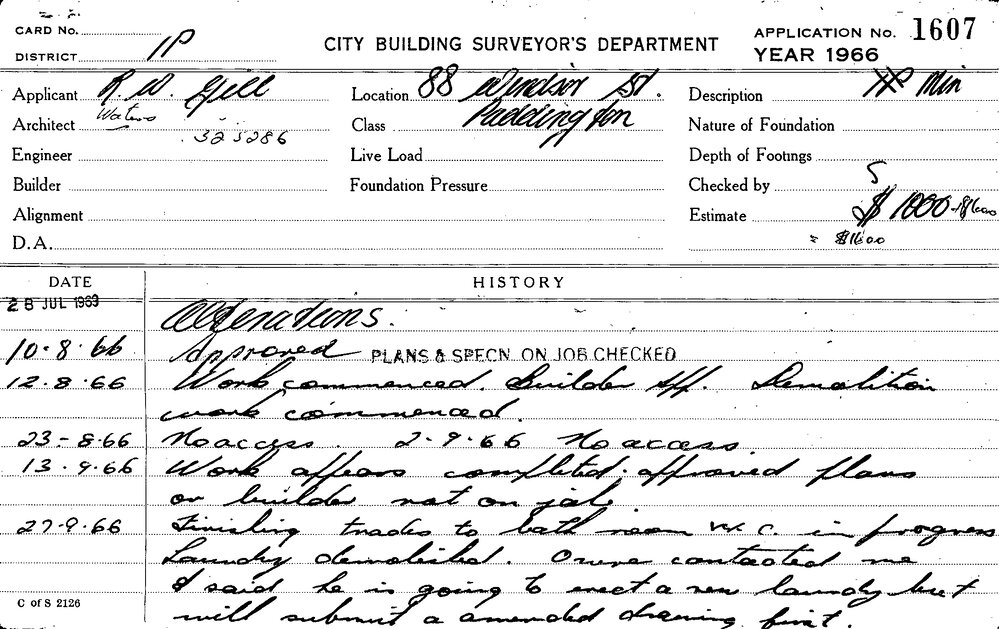 CARD No.
DISTRICT 1P
CITY BUILDING SURVEYOR'S DEPARTMENT
APPLICATION No. 1607
YEAR 1966
Applicant R. W. Gill
Location 88 Windsor St. Paddington
Description Min
Architect Waters 32 5286
Class
Nature of Foundation
Engineer
Live Load
Depth of Footings
Builder
Foundation Pressure
Checked by S
Alignment
Estimate $1000 $1600
D.A.
= $1600
DATE HISTORY
28 JUL 1963 Alterations.
10.8.66 Approved PLANS & SPECN. ON JOB CHECKED
12.8.66 Work commenced. Builder Demolition
work commenced.
23-8.66 No access. 2-9.66 No access
13.9.66 Work appears completed. approved plans
or builder not on job
27-9.66 Finishing trades to bath room W.C. in progress
Laundry demolished. Owner contacted me
& said he is going to erect a new laundry but
will submit a amended drawing first.
C of S 2126